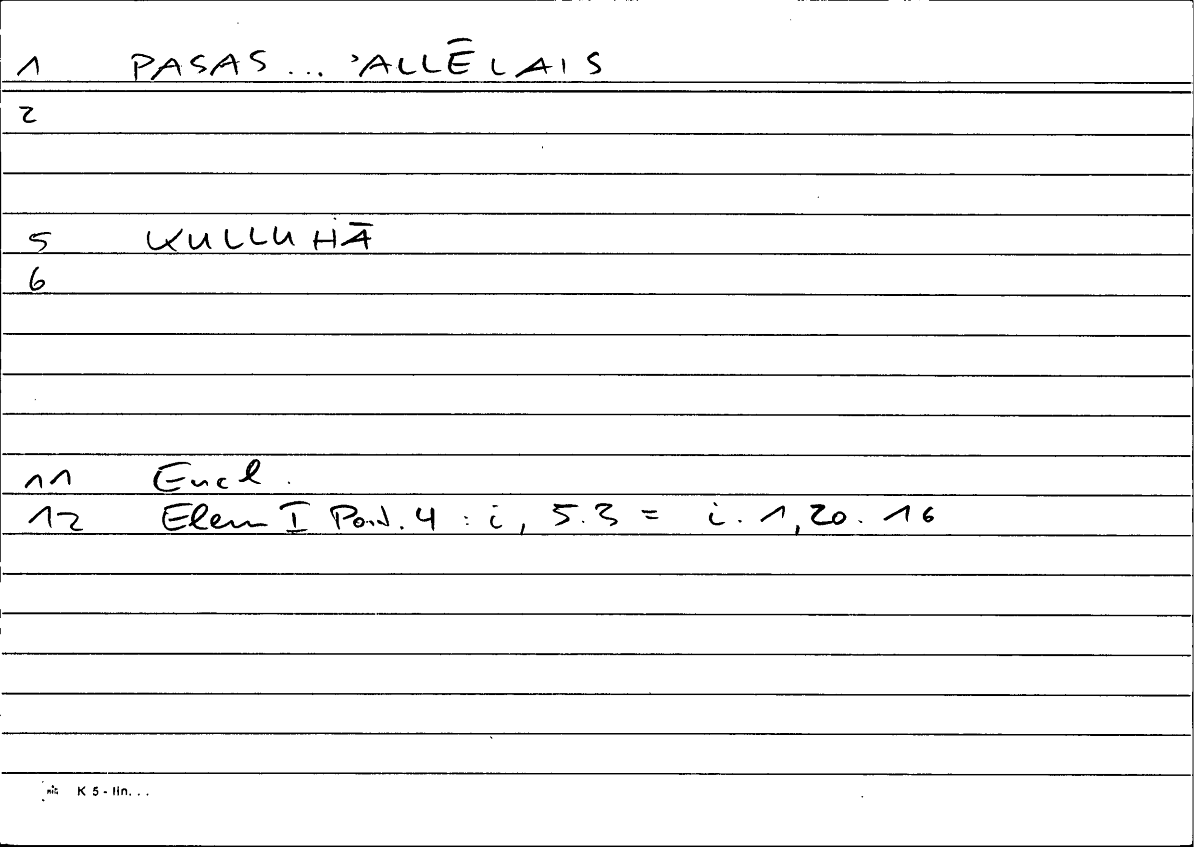 1 PASAS ... 'ALLĒLAIS
2
5 KULLUHĀ
6
11 Eucl.
12 Elem I Post. 4 : i, 5.3 = i. 1,20. 16
K 5 - lin. . .